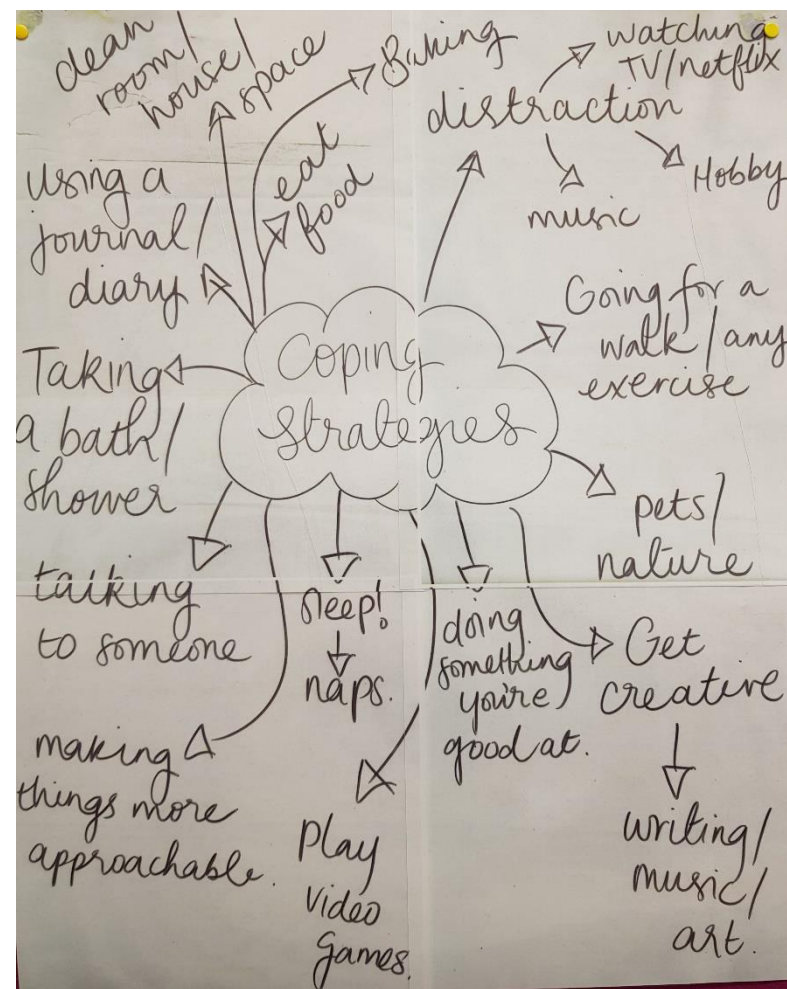 clean
room/
house/
space
Baking
eat
food
distraction
watching
TV/netflix
music
Hobby
using a
journal/
diary
Coping
Strategies
Going for a
walk/any
exercise
Taking
a bath/
shower
pets/
nature
talking
to someone
sleep!
naps.
doing
something
you're
good at.
Get
creative
writing/
music/
art.
making
things more
approachable.
Play
video
games.